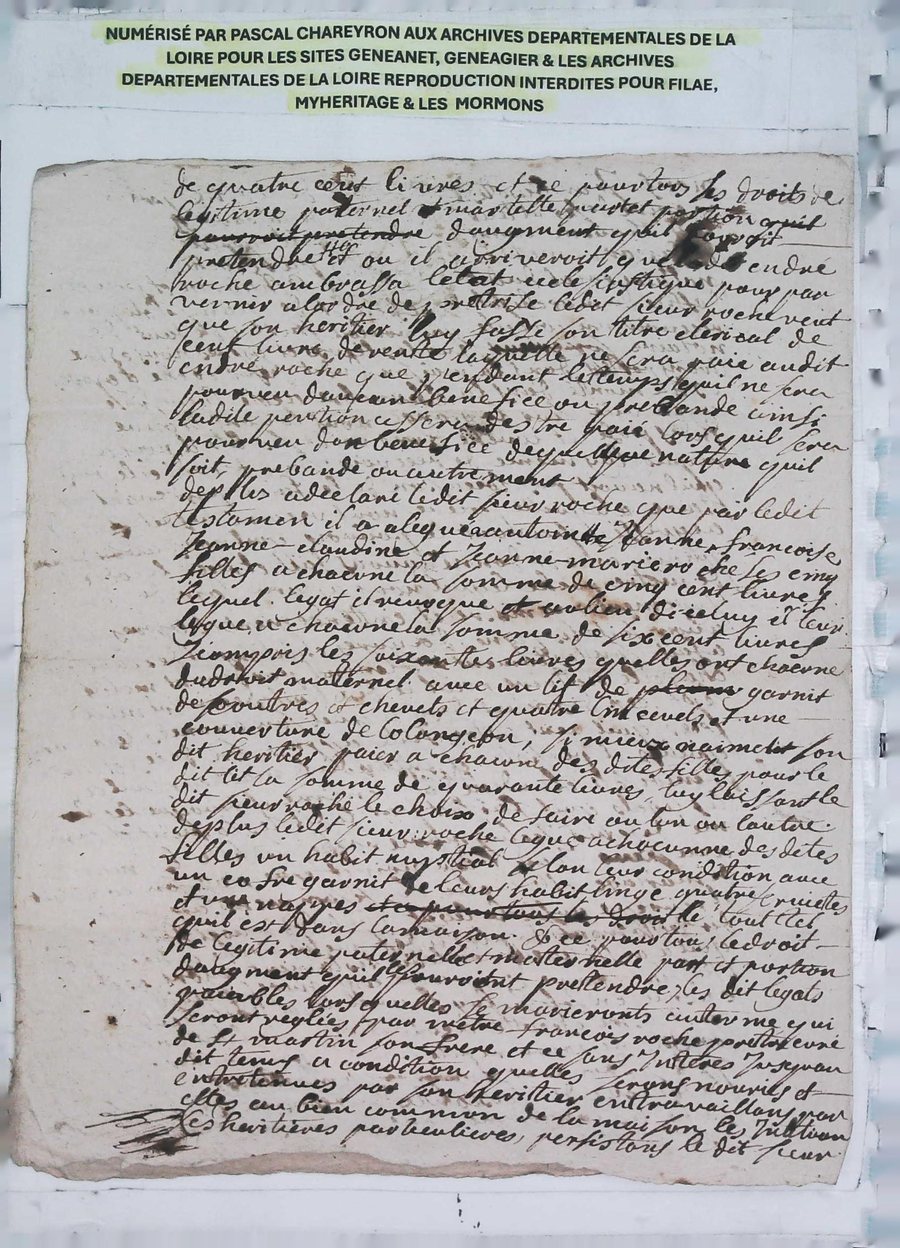 NUMÉRISÉ PAR PASCAL CHAREYRON AUX ARCHIVES DEPARTEMENTALES DE LA
LOIRE POUR LES SITES GENEANET, GENEAGIER & LES ARCHIVES
DEPARTEMENTALES DE LA LOIRE REPRODUCTION INTERDITES POUR FILAE,
MYHERITAGE & LES MORMONS
de quatre cent livres et ce pour tous les droits de
legitime paternel et martelle part et portion quil
pourroit pretendre daugment quil pourroit
pretendre et ou il arriveroit que endré
roche ambrassa letat eclesiastique pour par
venir alordre de pretrise ledit sieur roche veut
que son heritier luy fasse son titre clerical de
cent livre de rente laquelle ne sera paié audit
endré roche que pendant le temps quil ne sera
pourveu daucunt benefice ou prebande ainsi
ladite pention assera destre paié lors quil sera
pourveu dun benefice de quelque nature quil
soit prebande ou autrement
de plus a declaré ledit sieur roche que par ledit
testamen il a alegué a antoinette Jeanne, francoise
Jeanne-claudine et Jeanne-marie roche ses cinq
filles a chacune la somme de cinq cent livres
lequel legat il revoque et aulieu diceluy il leur
legue a chacune la somme de six cent livres
y compris les soixante livres quelles ont chacune
du droit maternel avec un lit de plume garnit
de coutres et chevets et quatre linceuls et une
couverture de Colongeon, si mieux naiment son
dit heritier paier a chacune des dites filles pour le
dit lit la somme de quarante livres, luy laissant le
dit sieur roche le choix de faire ou lun ou lautre
deplus ledit sieur roche legue a chacunne des dites
filles un habit nuptial selon leur condition avec
un cofre garnit de leurs habit, linge quatre
et une napes et ce pour tous les droit le tout tel
quil est dans la maison & ce pour tous le droit
de legitime paternelle et maternelle part et portion
daugment quil pouroint pretendre, les dit legats
paiables lors quelles se marieronts au terme qui
seront reglées par metre francois roche pretre curé
de st martin son frere et ce sans Interes Jusquau
dit temps a condition quelles serons nouries et
entretenues par son heritier en travaillans par
elles au bien commun de la maison les
ses heritieres particulieres, persistans le dit sieur